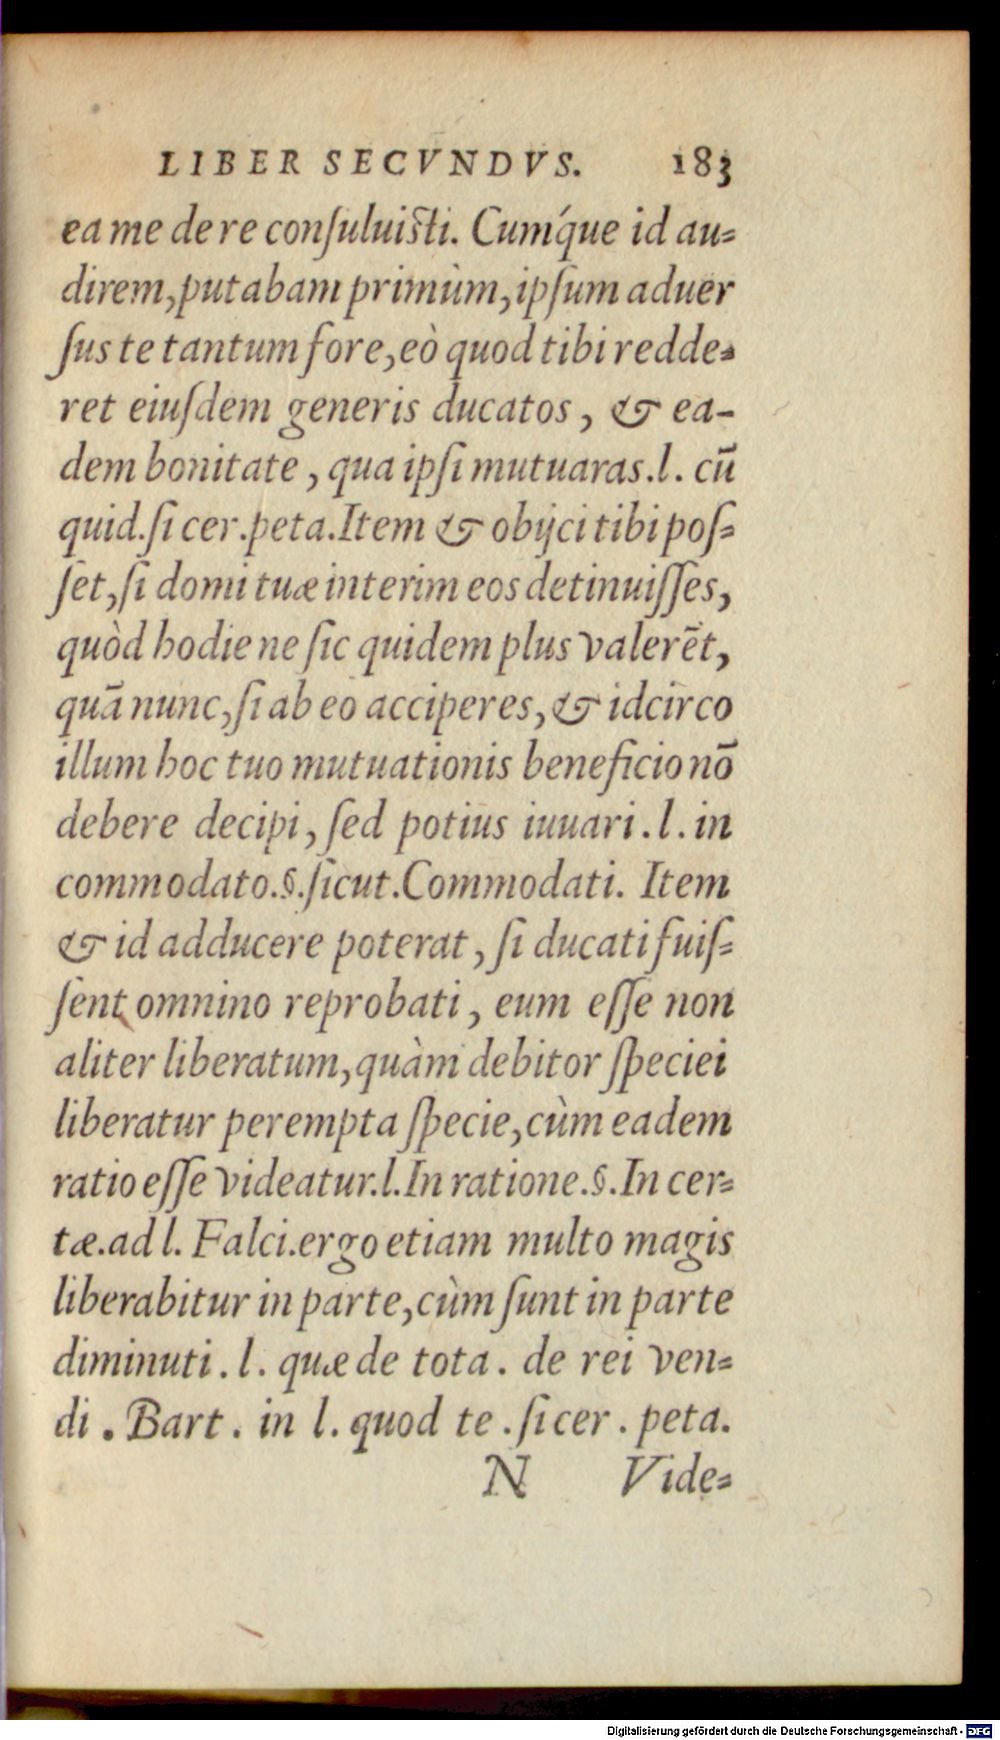 LIBER SECVNDVS. 183
ea me de re conſuluiſti. Cumq́ue id au=
direm, putabam primùm, ipſum aduer
ſus te tantum fore, eò quod tibi redde=
ret eiuſdem generis ducatos, & ea-
dem bonitate, qua ipſi mutuaras. l. cũ
quid. ſi cer. peta. Item & obijci tibi poſ=
ſet, ſi domi tuæ interim eos detinuiſſes,
quòd hodie ne ſic quidem plus valerẽt,
quã nunc, ſi ab eo acciperes, & idcirco
illum hoc tuo mutuationis beneficio nõ
debere decipi, ſed potius iuuari. l. in
commodato. §. ſicut. Commodati. Item
& id adducere poterat, ſi ducati fuiſ=
ſent omnino reprobati, eum eſſe non
aliter liberatum, quàm debitor ſpeciei
liberatur perempta ſpecie, cùm eadem
ratio eſſe videatur. l. In ratione. §. In cer=
tæ. ad l. Falci. ergo etiam multo magis
liberabitur in parte, cùm ſunt in parte
diminuti. l. quæ de tota. de rei ven=
di. Bart. in l. quod te. ſi cer. peta.
N Vide=
Digitalisierung gefördert durch die Deutsche Forschungsgemeinschaft - DFG